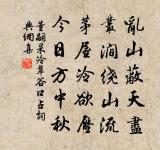 亂山蔽天盡
叢澗繞山流
茅屋冷欲壓
今日方中秋
董嗣杲冷翠谷口占詞
典網集